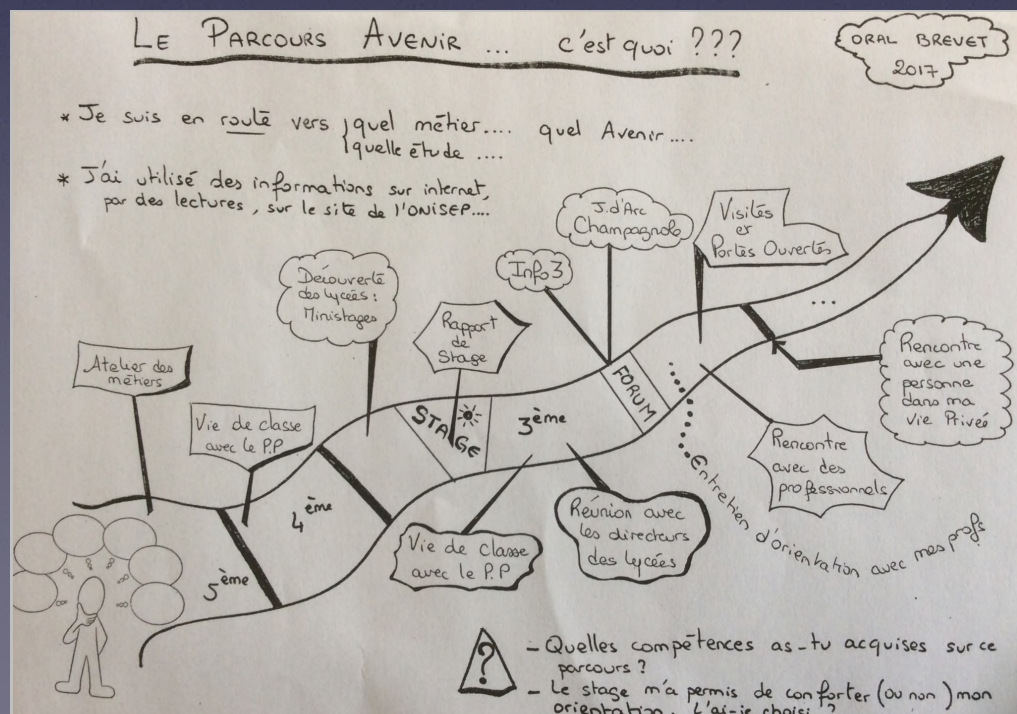 LE PARCOURS AVENIR ... c'est quoi ???
ORAL BREVET
2017
* Je suis en route vers quel métier.... quel Avenir....
quelle étude ....
* J'ai utilisé des informations sur internet,
par des lectures, sur le site de l'ONISEP....
J. d'Arc
Champagnole
Visités
et
Portes Ouvertes
Info 3
Découverte
des lycées :
Ministages
Rapport
de
Stage
Atelier des
métiers
Vie de classe
avec le P.P
STAGE
3ème
FORUM
...
Rencontre
avec une
personne
dans ma
vie Privée
Rencontre
avec des
professionnels
4ème
5ème
Vie de classe
avec le P.P
Réunion avec
les directeurs
des lycées
Entretien d'orientation avec mes profs
?
- Quelles compétences as-tu acquises sur ce
parcours ?
- Le stage m'a permis de conforter (ou non) mon
orientation. L'ai-je choisi ?